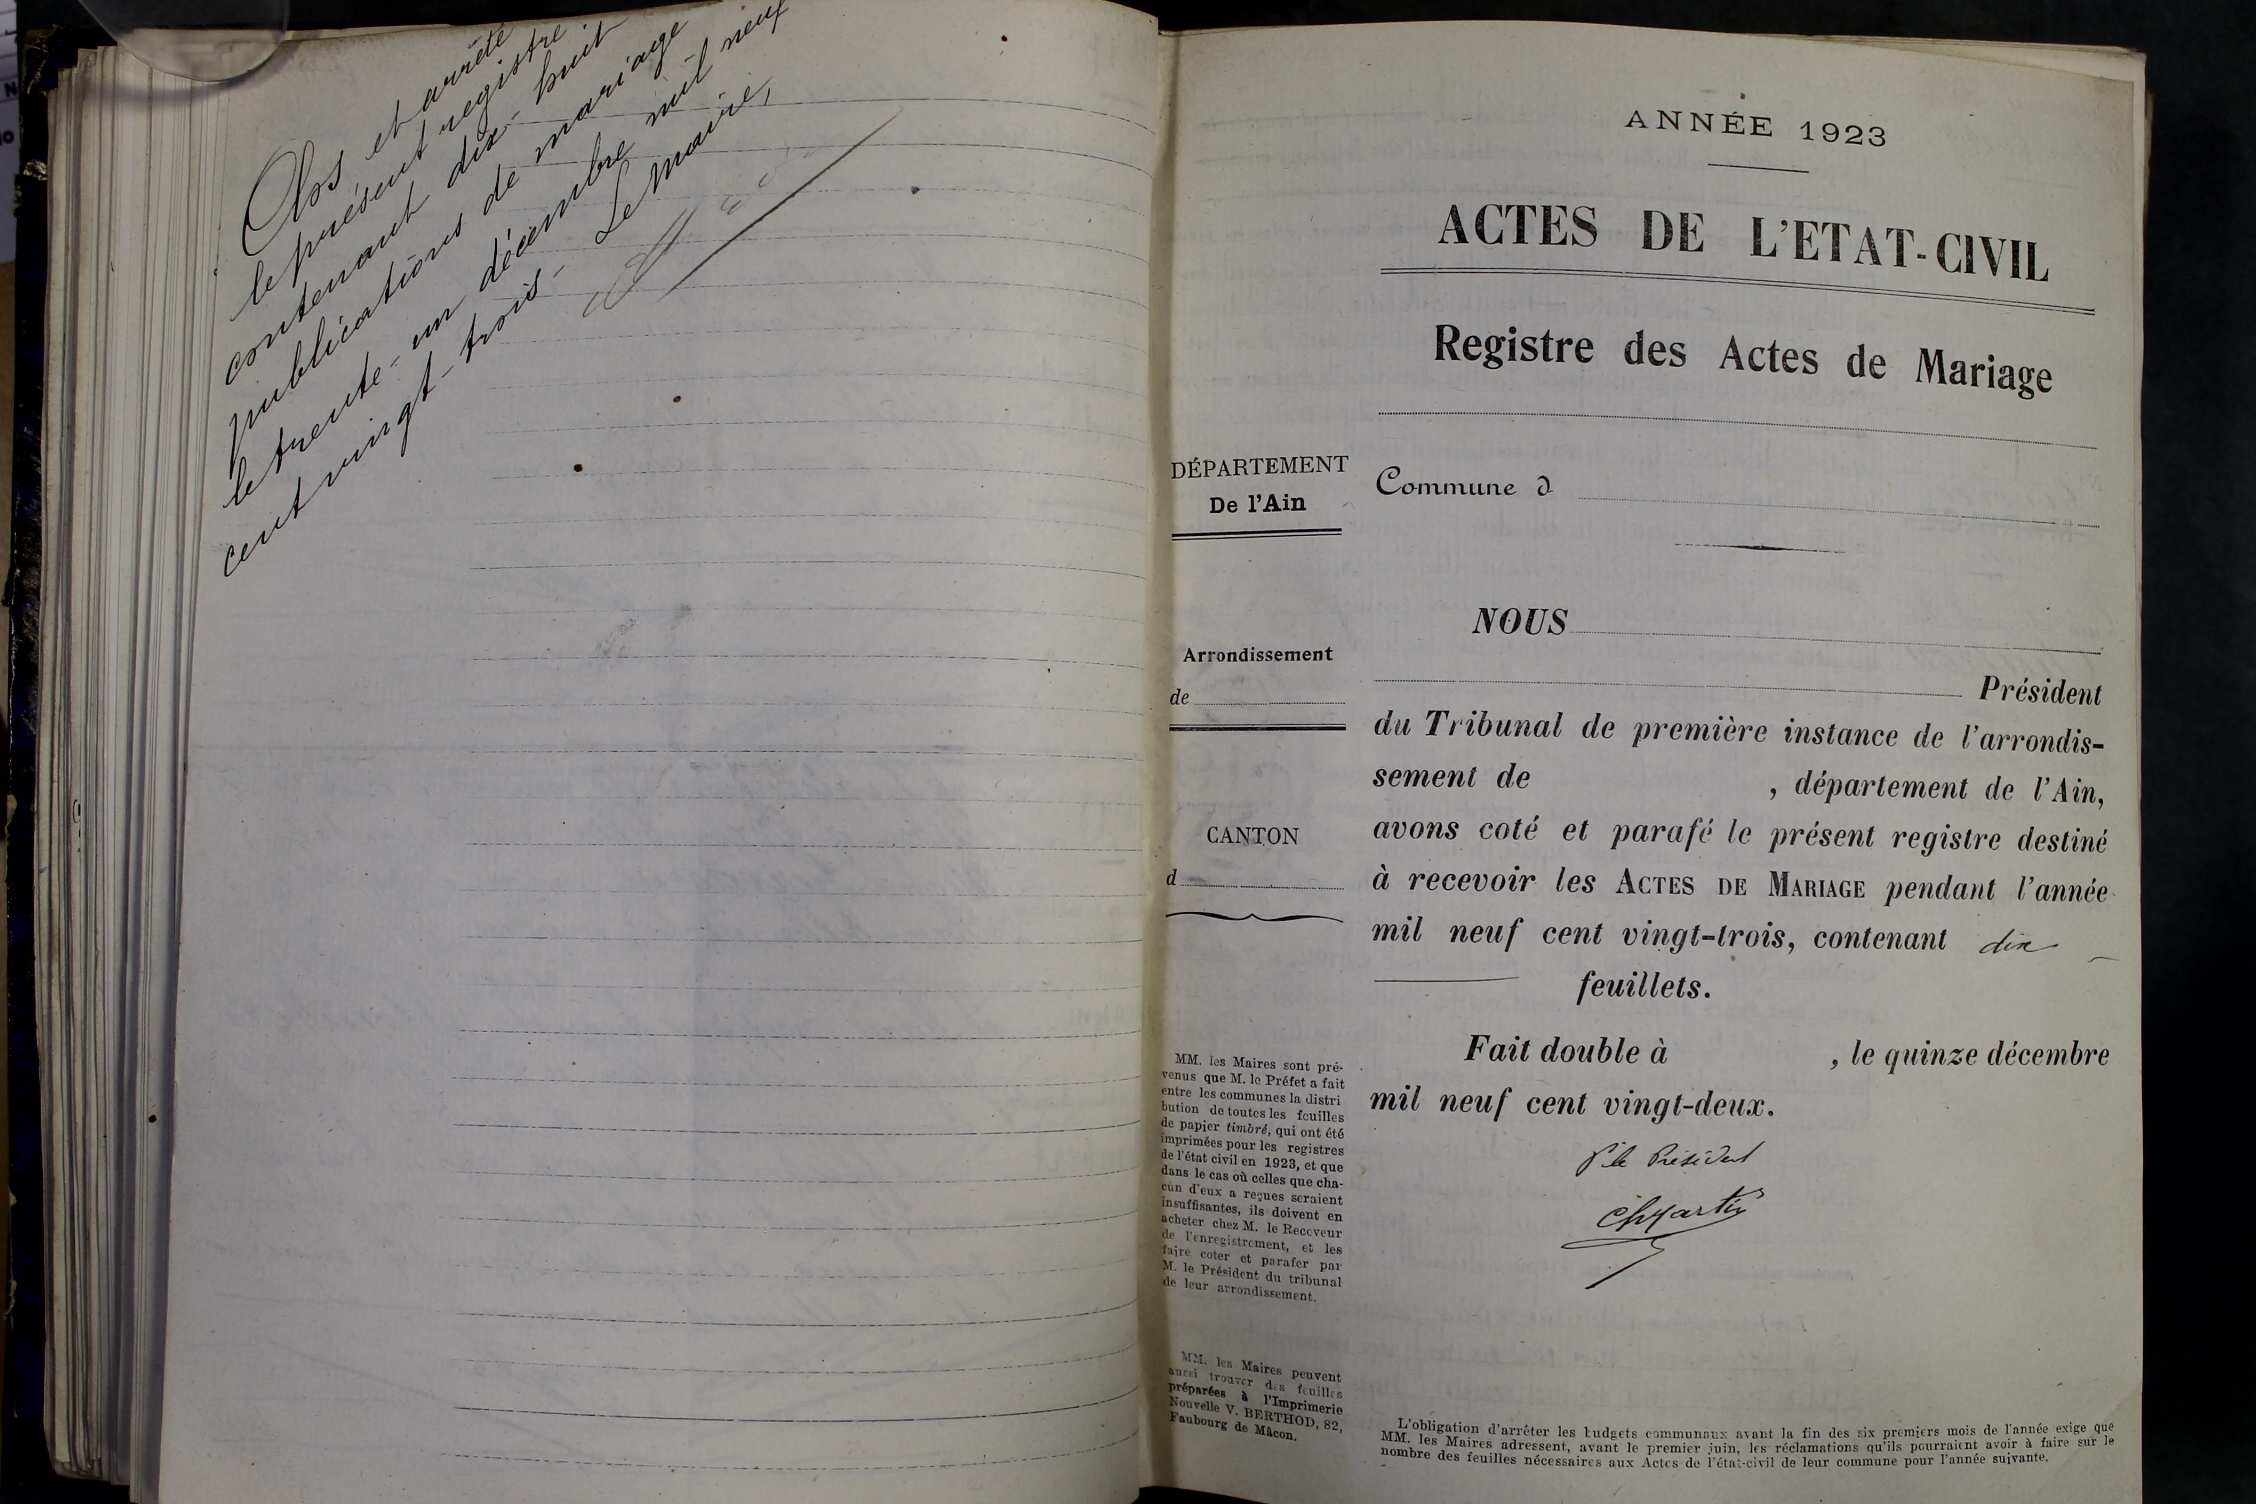 Clos et arrêté
le présent registre
contenant dix-huit
publications de mariage
le trente-un décembre mil neuf
cent vingt-trois- Le Maire,
ANNÉE 1923
ACTES DE L'ETAT-CIVIL
Registre des Actes de Mariage
DÉPARTEMENT
De l'Ain
Commune d
Arrondissement
de
CANTON
d
NOUS
Président
du Tribunal de première instance de l'arrondis-
sement de , département de l'Ain,
avons coté et parafé le présent registre destiné
à recevoir les ACTES DE MARIAGE pendant l'année
mil neuf cent vingt-trois, contenant dix
feuillets.
Fait double à , le quinze décembre
mil neuf cent vingt-deux.
P. le Président
MM. les Maires sont pré-
venus que M. le Préfet a fait
entre les communes la distri
bution de toutes les feuilles
de papier timbré, qui ont été
imprimées pour les registres
de l'état civil en 1923, et que
dans le cas où celles que cha-
cun d'eux a reçues seraient
insuffisantes, ils doivent en
acheter chez M. le Receveur
de l'enregistrement, et les
faire coter et parafer par
M. le Président du tribunal
de leur arrondissement.
MM. les Maires peuvent
aussi trouver des feuilles
préparées à l'Imprimerie
Nouvelle V. BERTHOD, 82,
Faubourg de Mâcon.
L'obligation d'arrêter les budgets communaux avant la fin des six premiers mois de l'année exige que
MM. les Maires adressent, avant le premier juin, les réclamations qu'ils pourraient avoir à faire sur le
nombre des feuilles nécessaires aux Actes de l'état-civil de leur commune pour l'année suivante.